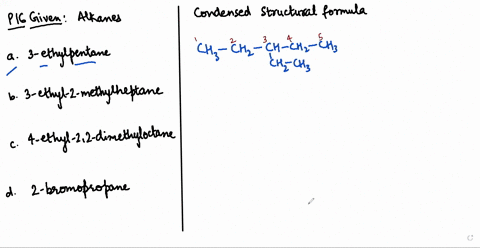 P16 Given: Alkanes
a. 3-ethylpentane
b. 3-ethyl-2-methylheptane
c. 4-ethyl-2,2-dimethyloctane
d. 2-bromopropane
Condensed Structural formula
1 2 3 4 5
CH3-CH2-CH-CH2-CH3
CH2-CH3